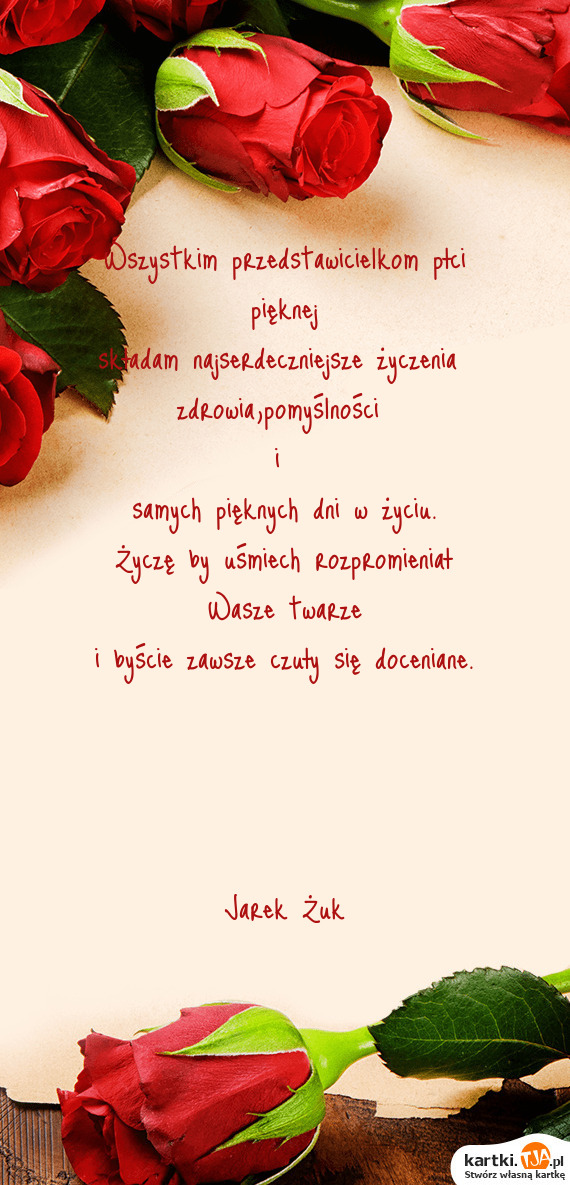 Wszystkim przedstawicielkom płci
pięknej
składam najserdeczniejsze życzenia
zdrowia,pomyślności
i
samych pięknych dni w życiu.
Życzę by uśmiech rozpromieniał
Wasze twarze
i byście zawsze czuły się doceniane.
Jarek Żuk
kartki.TJA.pl
Stwórz własną kartkę